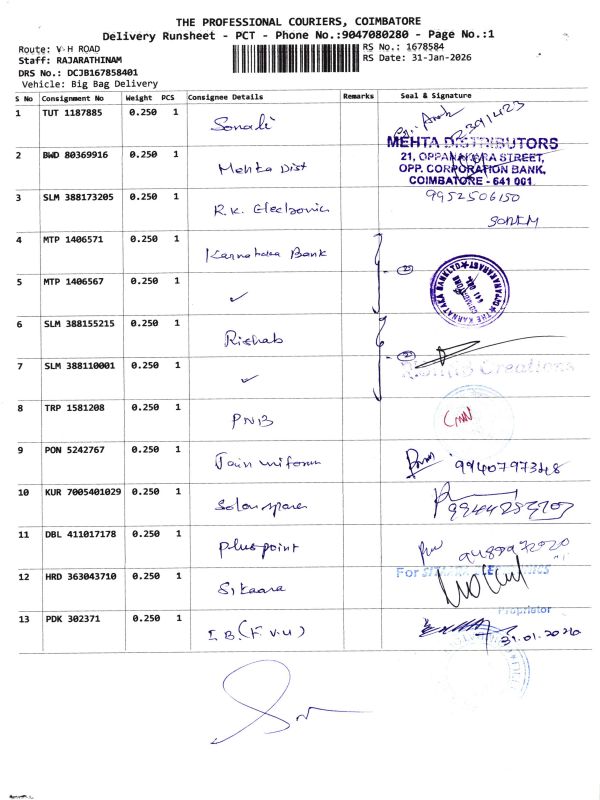 THE PROFESSIONAL COURIERS, COIMBATORE
Delivery Runsheet - PCT - Phone No.:9047080280 - Page No.:1
Route: V H ROAD
RS No.: 1678584
Staff: RAJARATHINAM
RS Date: 31-Jan-2026
DRS No.: DCJB167858401
Vehicle: Big Bag Delivery
S No Consignment No Weight PCS Consignee Details Remarks Seal & Signature
1 TUT 1187885 0.250 1 Sonali
2 BWD 80369916 0.250 1 Mehta Dist
MEHTA DISTRIBUTORS
21, OPPANAKARA STREET,
OPP. CORPORATION BANK,
COIMBATORE - 641 001
3 SLM 388173205 0.250 1 R.K. Electronics 9952506150
4 MTP 1406571 0.250 1 Karnataka Bank
5 MTP 1406567 0.250 1 ✓
THE KARNATAKA BANK LTD
6 SLM 388155215 0.250 1 Rishab
7 SLM 388110001 0.250 1 ✓
Creations
8 TRP 1581208 0.250 1 PNB
9 PON 5242767 0.250 1 Jain uniform 9940797348
10 KUR 7005401029 0.250 1 Solar spares
11 DBL 411017178 0.250 1 Plus point
12 HRD 363043710 0.250 1 Sitaara
For
Proprietor
13 PDK 302371 0.250 1 I B (F.V.U) 31.01.2026